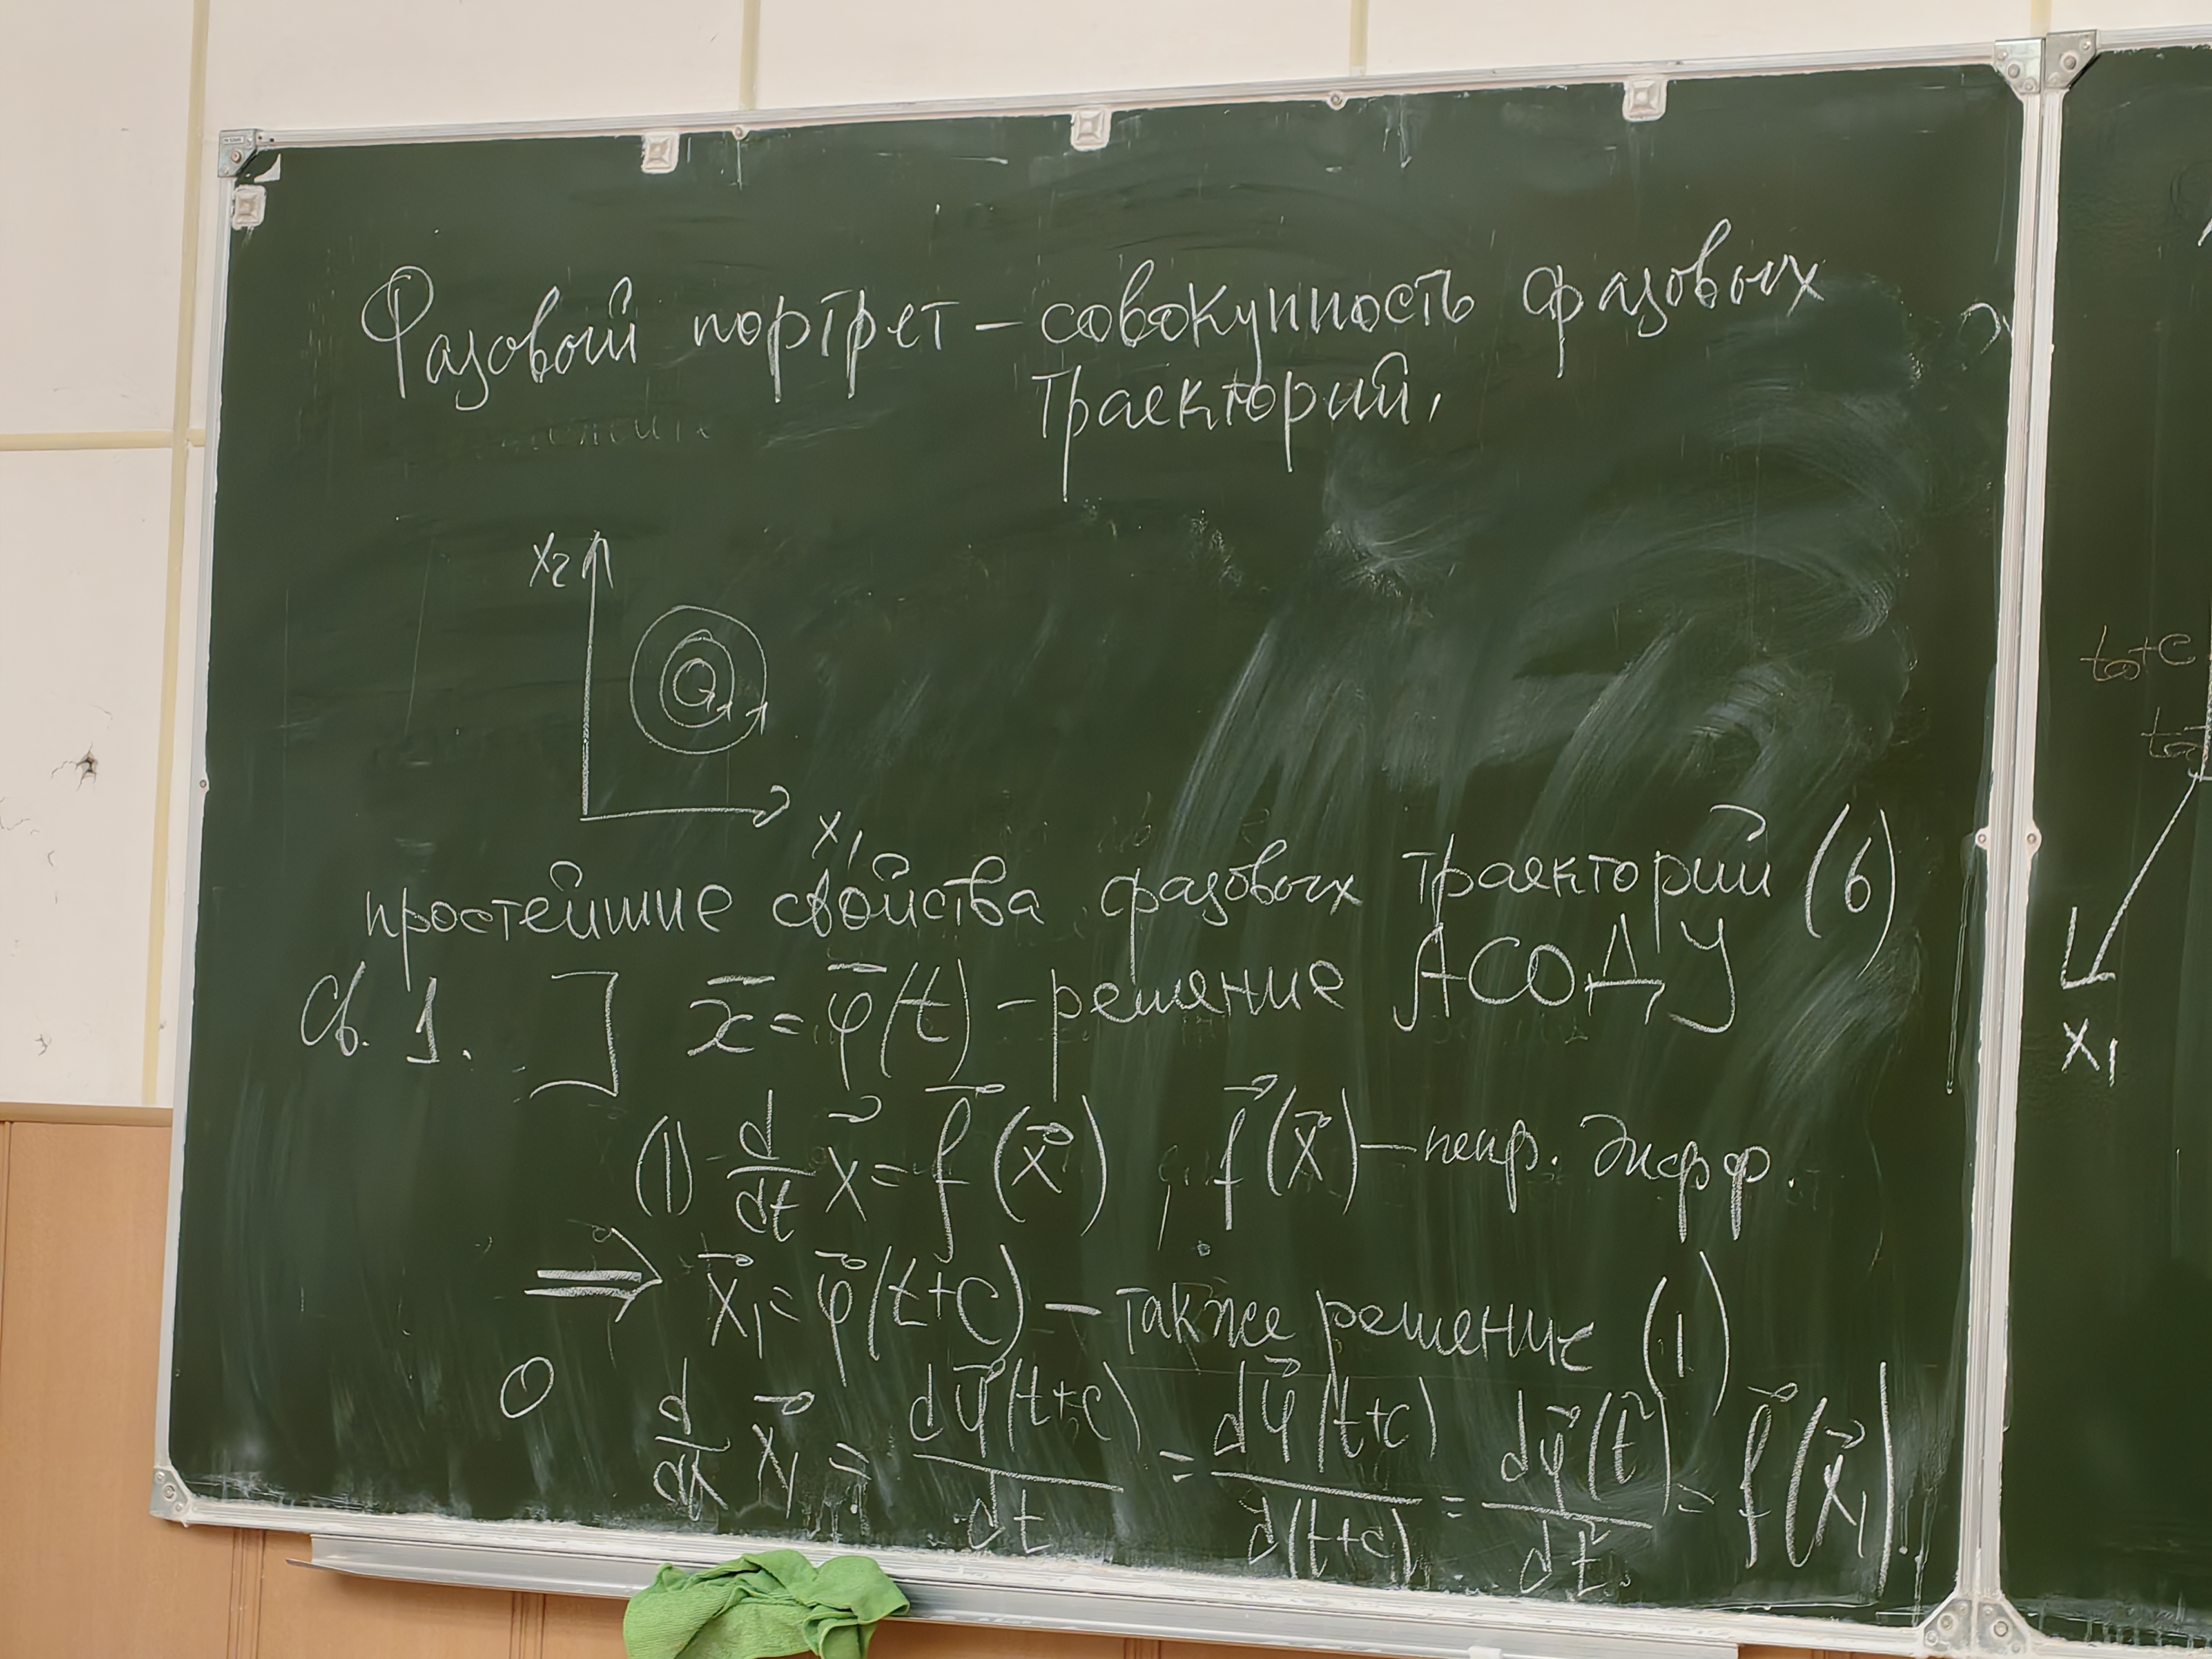 Фазовый портрет – совокупность фазовых
траекторий.
x₂
x₁
простейшие свойства фазовых траекторий (6)
Св. 1. ] x̄ = φ̄(t) – решение АСОДУ
(1) d/dt x⃗ = f⃗(x⃗), f⃗(x⃗) – непр. дифф.
⟹ x⃗₁ = φ⃗(t+c) – также решение (1)
d/dt x⃗₁ = dφ⃗(t+c)/dt = dφ⃗(t+c)/d(t+c) = dφ⃗(t̃)/dt̃ = f⃗(x⃗₁).
t₀+c
t₀
x₁